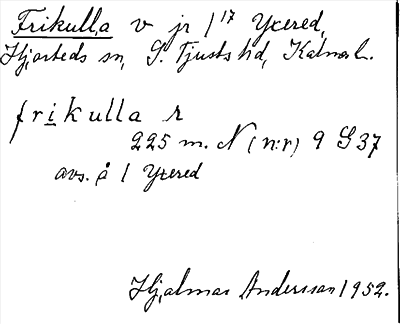 Frikulla v jr 1¹⁷ Yxered,
Hjorteds sn, S. Tjusts hd, Kalmar l.
frikulla r
225 m. N (n:r) 9 G 37
avs. å 1 Yxered
Hjalmar Andersson 1952.